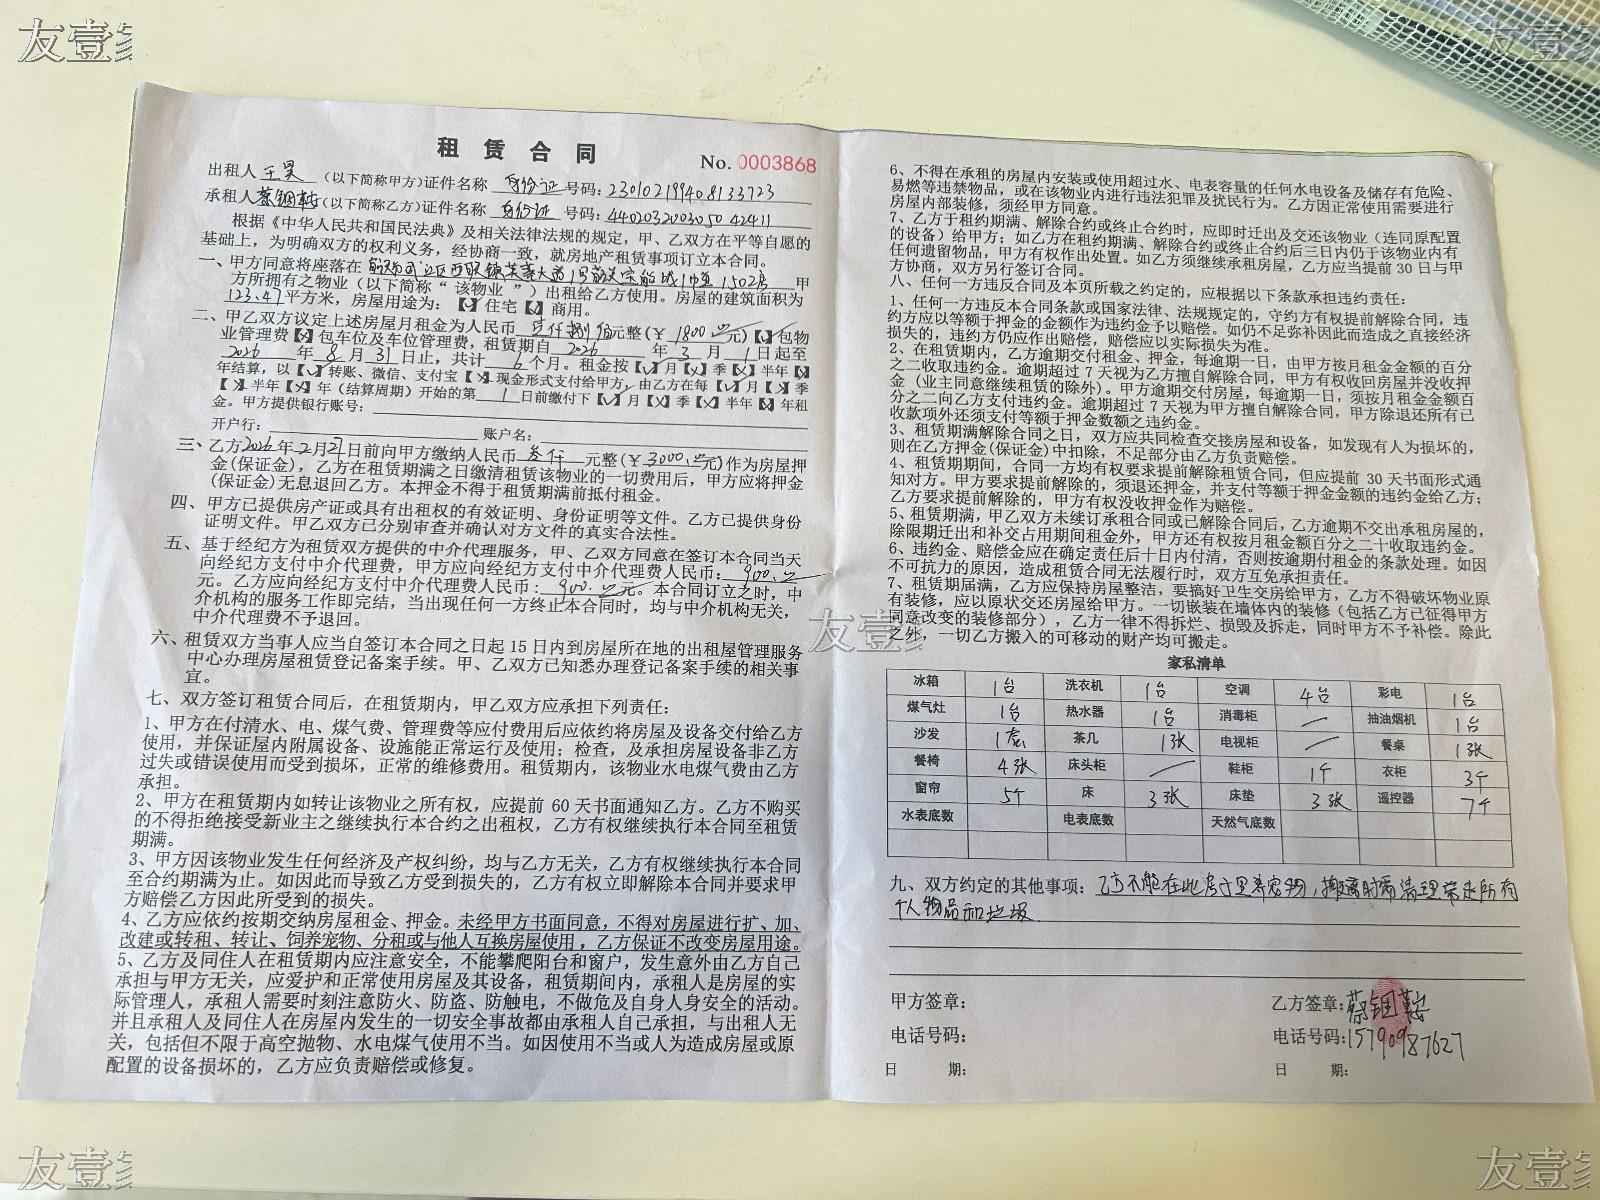 友壹家
友壹家
租赁合同
No. 0003868
出租人 王昊 (以下简称甲方)证件名称 身份证 号码:230102199408133723
承租人 蔡 (以下简称乙方)证件名称 身份证 号码:440203200305042411
根据《中华人民共和国民法典》及相关法律法规的规定，甲、乙双方在平等自愿的
基础上，为明确双方的权利义务，经协商一致，就房地产租赁事项订立本合同。
一、甲方同意将座落在 大道1号 1502房 甲
方所拥有之物业（以下简称“该物业”）出租给乙方使用。房屋的建筑面积为
123.47平方米，房屋用途为：【✓】住宅【✓】商用。
二、甲乙双方议定上述房屋月租金为人民币 壹仟捌佰元整(￥ 1800.00元)【✓】包物
业管理费【X】包车位及车位管理费，租赁期自 2026 年 3 月 1 日起至
2026 年 8 月 31 日止，共计 6 个月。租金按【✓】月【X】季【X】半年【X】
年结算，以【✓】转账、微信、支付宝【X】现金形式支付给甲方，由乙方在每【✓】月【X】季
【X】半年【X】年（结算周期）开始的第 1 日前缴付下【✓】月【X】季【X】半年【X】年租
金。甲方提供银行账号：
开户行： 账户名：
三、乙方2026年2月27日前向甲方缴纳人民币 叁仟 元整(￥3000.00元)作为房屋押
金(保证金)，乙方在租赁期满之日缴清租赁该物业的一切费用后，甲方应将押金
(保证金)无息退回乙方。本押金不得于租赁期满前抵付租金。
四、甲方已提供房产证或具有出租权的有效证明、身份证明等文件。乙方已提供身份
证明文件。甲乙双方已分别审查并确认对方文件的真实合法性。
五、基于经纪方为租赁双方提供的中介代理服务，甲、乙双方同意在签订本合同当天
向经纪方支付中介代理费，甲方应向经纪方支付中介代理费人民币： 900.00
元。乙方应向经纪方支付中介代理费人民币： 900.00 元。本合同订立之时，中
介机构的服务工作即完结，当出现任何一方终止本合同时，均与中介机构无关，
中介代理费不予退回。
六、租赁双方当事人应当自签订本合同之日起 15 日内到房屋所在地的出租屋管理服务
中心办理房屋租赁登记备案手续。甲、乙双方已知悉办理登记备案手续的相关事
宜。
七、双方签订租赁合同后，在租赁期内，甲乙双方应承担下列责任：
1、甲方在付清水、电、煤气费、管理费等应付费用后应依约将房屋及设备交付给乙方
使用，并保证屋内附属设备、设施能正常运行及使用；检查，及承担房屋设备非乙方
过失或错误使用而受到损坏，正常的维修费用。租赁期内，该物业水电煤气费由乙方
承担。
2、甲方在租赁期内如转让该物业之所有权，应提前 60 天书面通知乙方。乙方不购买
的不得拒绝接受新业主之继续执行本合约之出租权，乙方有权继续执行本合同至租赁
期满。
3、甲方因该物业发生任何经济及产权纠纷，均与乙方无关，乙方有权继续执行本合同
至合约期满为止。如因此而导致乙方受到损失的，乙方有权立即解除本合同并要求甲
方赔偿乙方因此所受到的损失。
4、乙方应依约按期交纳房屋租金、押金。未经甲方书面同意，不得对房屋进行扩、加、
改建或转租、转让、饲养宠物、分租或与他人互换房屋使用，乙方保证不改变房屋用途。
5、乙方及同住人在租赁期内应注意安全，不能攀爬阳台和窗户，发生意外由乙方自己
承担与甲方无关，应爱护和正常使用房屋及其设备，租赁期间内，承租人是房屋的实
际管理人，承租人需要时刻注意防火、防盗、防触电，不做危及自身人身安全的活动。
并且承租人及同住人在房屋内发生的一切安全事故都由承租人自己承担，与出租人无
关，包括但不限于高空抛物、水电煤气使用不当。如因使用不当或人为造成房屋或原
配置的设备损坏的，乙方应负责赔偿或修复。
6、不得在承租的房屋内安装或使用超过水、电表容量的任何水电设备及储存有危险、
易燃等违禁物品，或在该物业内进行违法犯罪及扰民行为。乙方因正常使用需要进行
房屋内部装修，须经甲方同意。
7、乙方于租约期满、解除合约或终止合约时，应即时迁出及交还该物业（连同原配置
的设备）给甲方；如乙方在租约期满、解除合约或终止合约后三日内仍于该物业内有
任何遗留物品，甲方有权作出处置。如乙方须继续承租房屋，乙方应当提前 30 日与甲
方协商，双方另行签订合同。
八、任何一方违反合同及本页所载之约定的，应根据以下条款承担违约责任：
1、任何一方违反本合同条款或国家法律、法规规定的，守约方有权提前解除合同，违
约方应以等额于押金的金额作为违约金予以赔偿。如仍不足弥补因此而造成之直接经济
损失的，违约方仍应作出赔偿，赔偿应以实际损失为准。
2、在租赁期内，乙方逾期交付租金、押金，每逾期一日，由甲方按月租金金额的百分
之二收取违约金。逾期超过 7 天视为乙方擅自解除合同，甲方有权收回房屋并没收押
金（业主同意继续租赁的除外）。甲方逾期交付房屋，每逾期一日，须按月租金金额百
分之二向乙方支付违约金。逾期超过 7 天视为甲方擅自解除合同，甲方除退还所有已
收款项外还须支付等额于押金数额之违约金。
3、租赁期满解除合同之日，双方应共同检查交接房屋和设备，如发现有人为损坏的，
则在乙方押金(保证金)中扣除，不足部分由乙方负责赔偿。
4、租赁期期间，合同一方均有权要求提前解除租赁合同，但应提前 30 天书面形式通
知对方。甲方要求提前解除的，须退还押金，并支付等额于押金金额的违约金给乙方；
乙方要求提前解除的，甲方有权没收押金作为赔偿。
5、租赁期满，甲乙双方未续订承租合同或已解除合同后，乙方逾期不交出承租房屋的，
除限期迁出和补交占用期间租金外，甲方还有权按月租金额百分之二十收取违约金。
6、违约金、赔偿金应在确定责任后十日内付清，否则按逾期付租金的条款处理。如因
不可抗力的原因，造成租赁合同无法履行时，双方互免承担责任。
7、租赁期届满，乙方应保持房屋整洁，要搞好卫生交房给甲方，乙方不得破坏物业原
有装修，应以原状交还房屋给甲方。一切嵌装在墙体内的装修（包括乙方已征得甲方
同意改变的装修部分），乙方一律不得拆烂、损毁及拆走，同时甲方不予补偿。除此
之外，一切乙方搬入的可移动的财产均可搬走。
友壹家
家私清单
冰箱 1台 洗衣机 1台 空调 4台 彩电 1台
煤气灶 1台 热水器 1台 消毒柜 — 抽油烟机 1台
沙发 1套 茶几 1张 电视柜 — 餐桌 1张
餐椅 4张 床头柜 — 鞋柜 1个 衣柜 3个
窗帘 5个 床 3张 床垫 3张 遥控器 7个
水表底数 电表底数 天然气底数
九、双方约定的其他事项：乙方不能在此房子里养宠物，搬离时需清理带走所有
个人物品和垃圾
甲方签章： 乙方签章：蔡
电话号码： 电话号码:15790987627
日 期： 日 期：
友壹家
友壹家